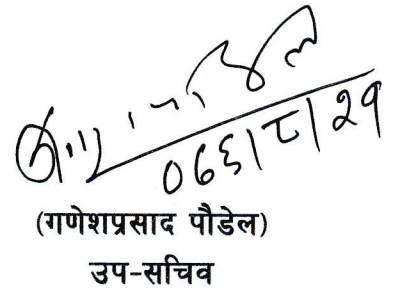 ०७६।८।२१
(गणेशप्रसाद पौडेल)
उप-सचिव